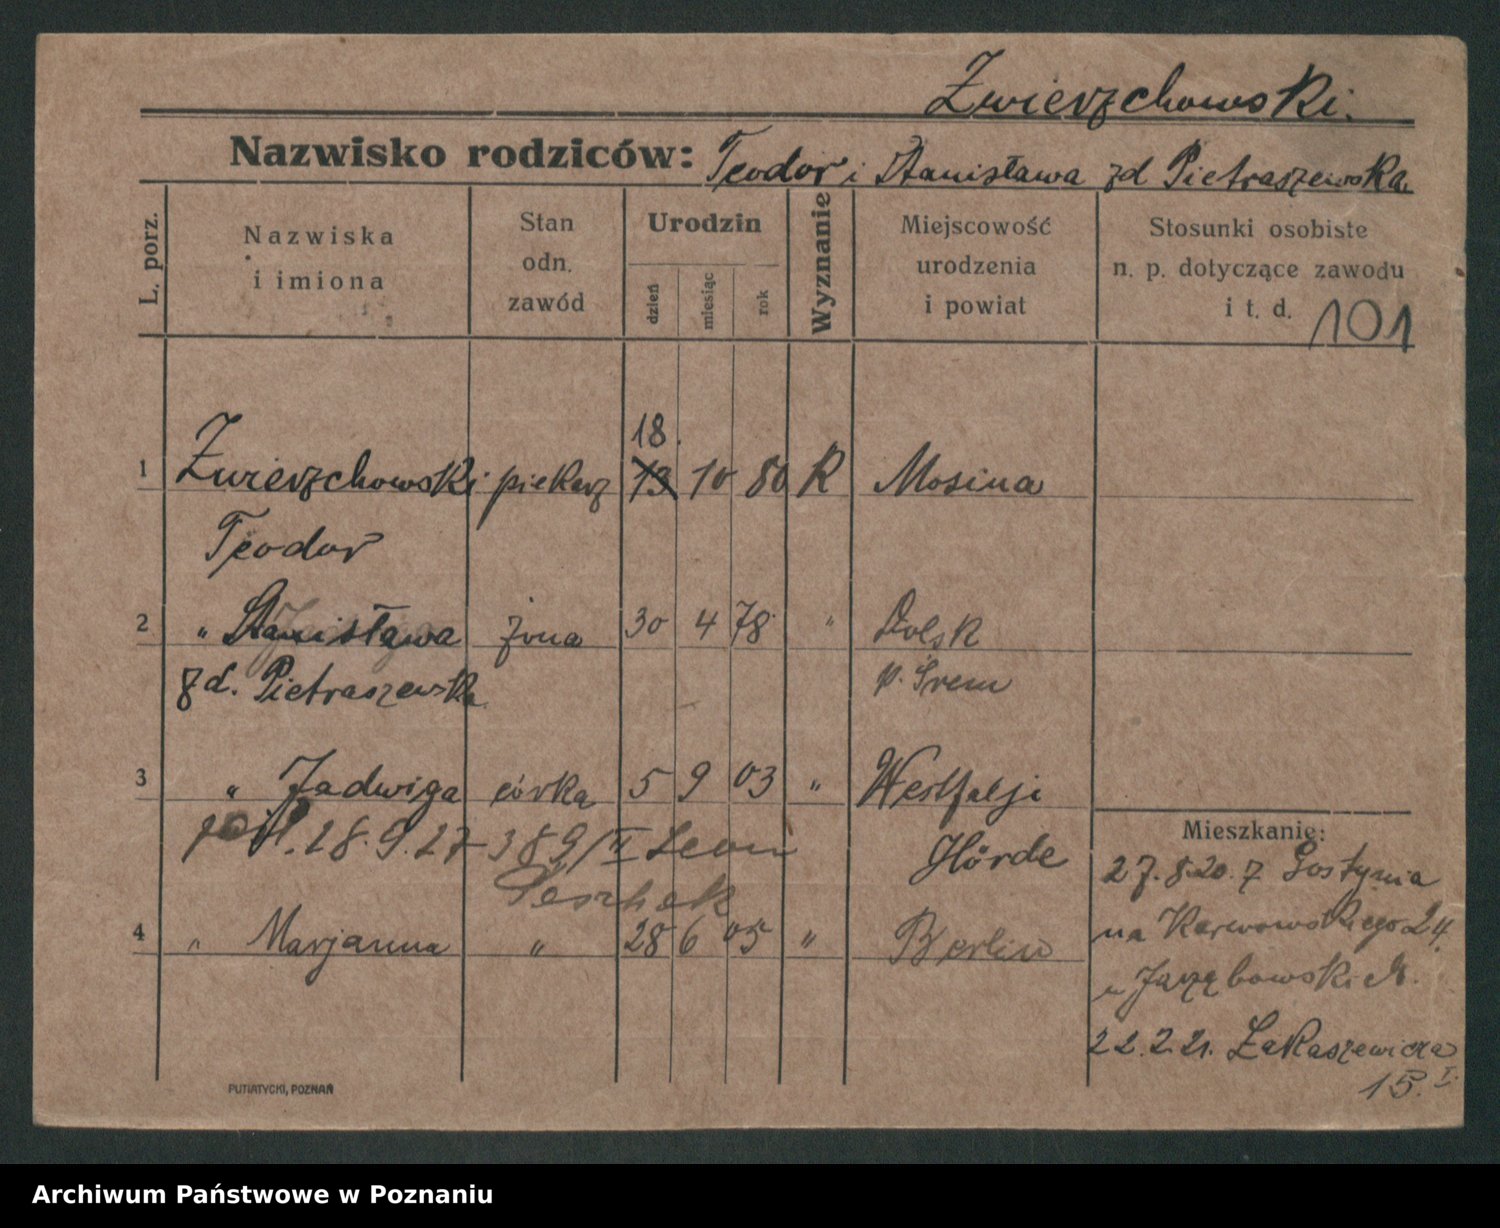 Zwierzchowski.
Nazwisko rodziców: Teodor i Stanisława zd Pietraszewska
L. porz.
Nazwiska i imiona
Stan odn. zawód
Urodzin
dzień miesiąc rok
Wyznanie
Miejscowość urodzenia i powiat
Stosunki osobiste n. p. dotyczące zawodu i t. d. 101
18.
1 Zwierzchowski piekarz 13 10 80 R Mosina
Teodor
2 " Stanisława żona 30 4 78 " Dolsk
zd. Pietraszewska p. Śrem
3 " Jadwiga córka 5 9 03 " Westfalji
28.9.27 389/II Leon Hörde
Peschek
4 " Marjanna " 28 6 05 " Berlin
Mieszkanie:
27.8.20. z Gostynia
na Karwowskiego 24.
u Jarzębowskich.
22.2.21. Łakaszewicza
15. I.
PUTIATYCKI, POZNAŃ
Archiwum Państwowe w Poznaniu